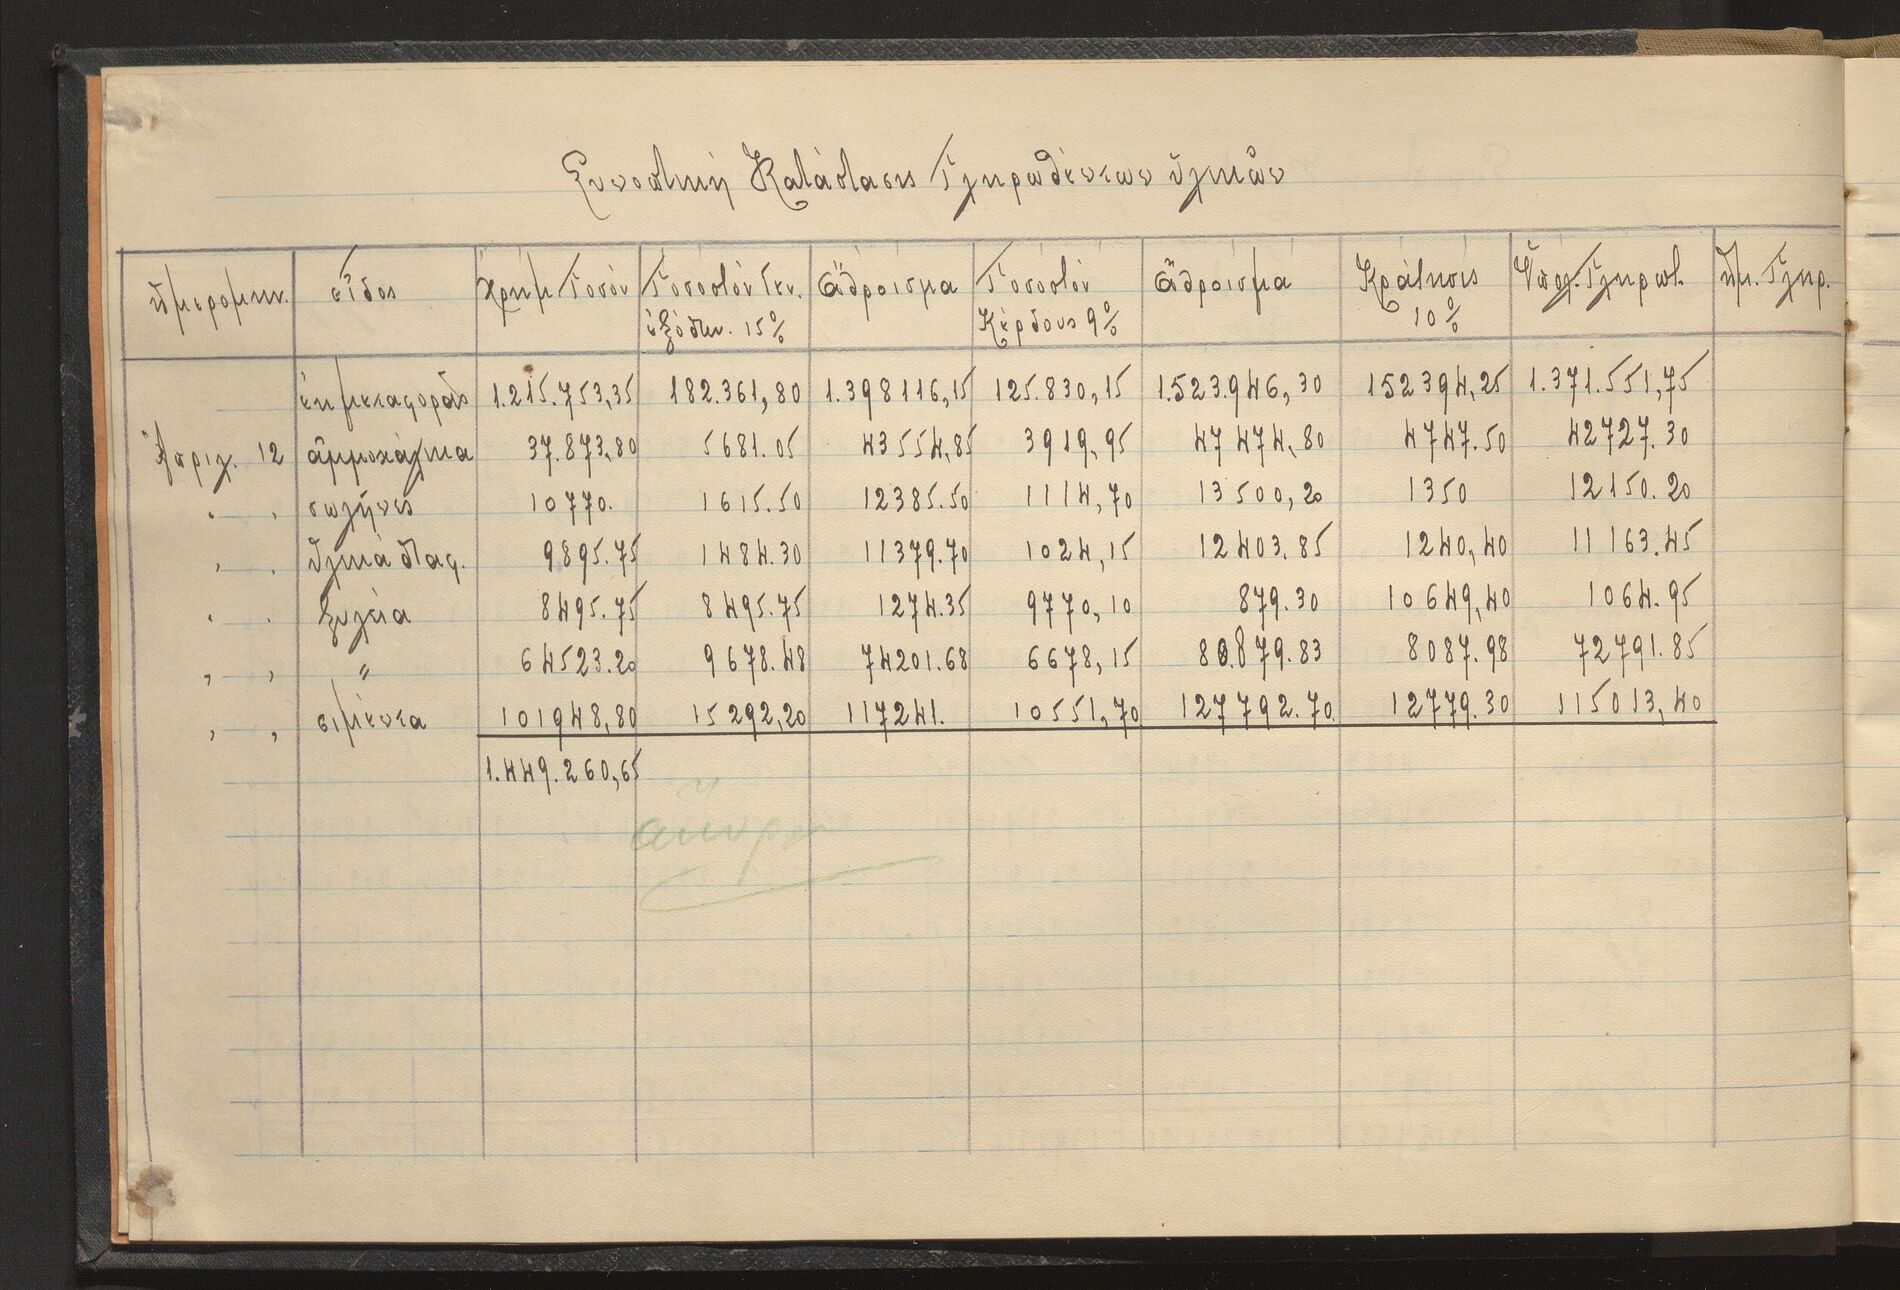 Συνοπτική Κατάστασις Πληρωθέντων ὑλικῶν
ἡμερομην. εἶδος Χρημ. Ποσόν Ποσοστόν Γεν. ἐξόδων. 15% ἄθροισμα Ποσοστόν Κέρδους 9% ἄθροισμα Κράτησις 10% Ὑπολ. Πληρωτ. ἡμ. Πληρ.
ἐκ μεταφορᾶς 1.215.753,35 182.361,80 1.398116,15 125.830,15 1.523.946,30 152394,25 1.371.551,75
Ἀπριλ. 12 ἀμμοχάλικα 37.873,80 5681.05 43554,85 3919,95 47474,80 4747.50 42727.30
" " σωλῆνες 10770. 1615.50 12385.50 1114,70 13500,20 1350 12150.20
" " ὑλικὰ διαφ. 9895.75 1484.30 11379.70 1024,15 12403.85 1240,40 11163.45
" " ξυλεία 8495.75 8495.75 1274.35 9770,10 879.30 10649,40 1064.95
" " " 64523.20 9678.48 74201.68 6678,15 80.879.83 8087.98 72791.85
" " σιμέντα 101948,80 15292,20 117241. 10551,70 127792.70 12779.30 115013,40
1.449.260,65
ἄκυρον